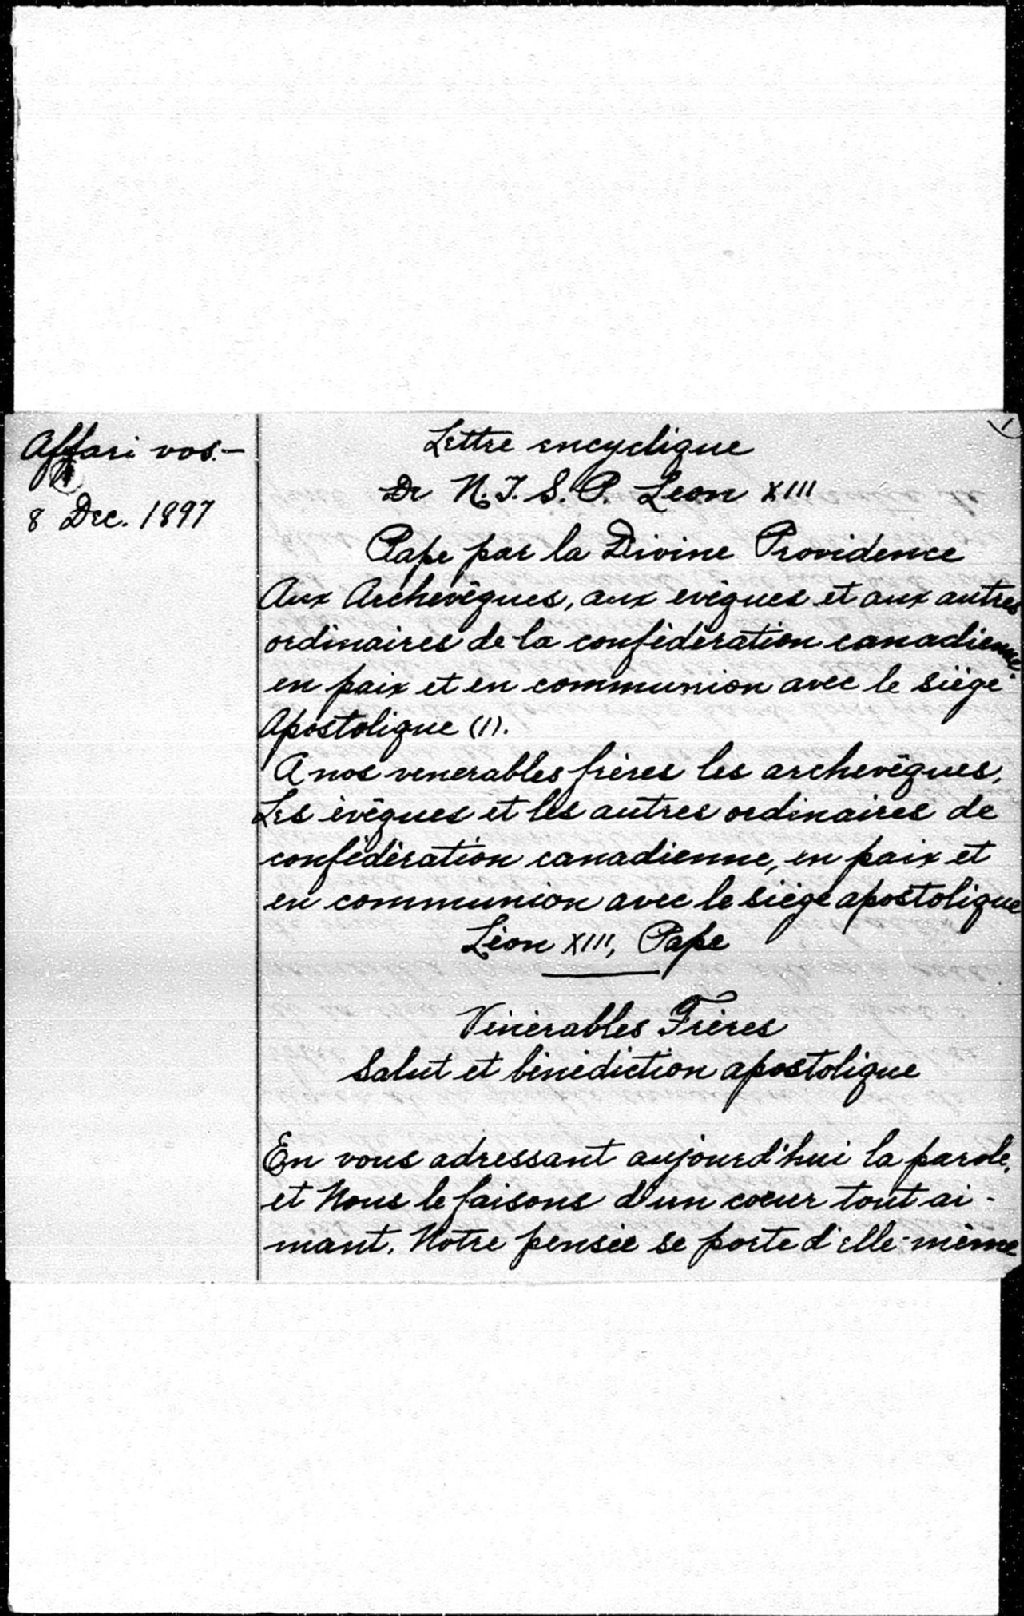 Affari vos.—
8 Dec. 1897
1
Lettre encyclique
De N. T. S. P. Leon XIII
Pape par la Divine Providence
Aux Archevêques, aux evêques et aux autres
ordinaires de la confédération canadienne
en paix et en communion avec le siège
Apostolique (1).
A nos venerables frères les archevêques,
Les évêques et les autres ordinaires de
confédération canadienne, en paix et
en communion avec le siège apostolique
Léon XIII, Pape
Vénérables Frères
Salut et bénédiction apostolique
En vous adressant aujourd'hui la parole,
et Nous le faisons d'un coeur tout ai-
mant. Notre pensée se porte d'elle-même